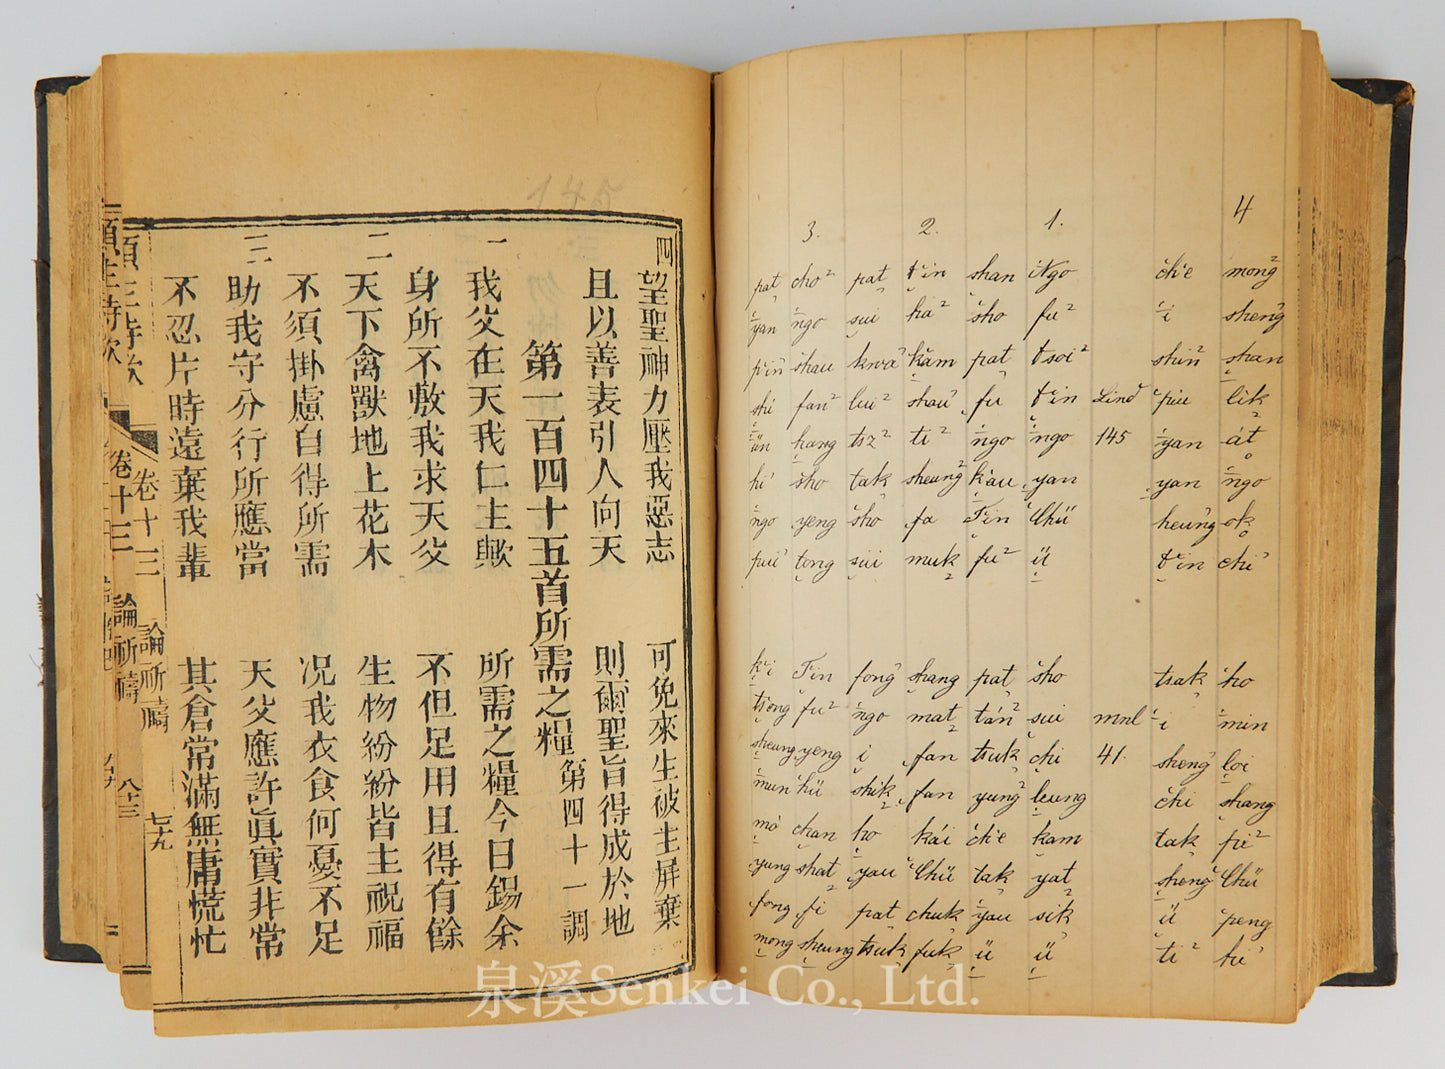 145
四 望聖神力壓我惡志 可免來生被主屏棄
且以善表引人向天 則爾聖旨得成於地
第一百四十五首所需之糧 第四十一調
一 我父在天我仁主歟 所需之糧今日錫余
身所不敷我求天父 不但足用且得有餘
二 天下禽獸地上花木 生物紛紛皆主祝福
不須掛慮自得所需 况我衣食何憂不足
三 助我守分行所應當 天父應許眞實非常
不忍片時遠棄我輩 其倉常滿無庸慌忙
頌主詩歌 卷十三 論祈禱 七十九
卷十三 論祈禱 八十三
4 mong² shengʾ shan lik át ngo ok chiʾ ho min loi shang pi² Chü peng hiʾ
ch'e i shin² piu yan yan heungʾ t'in tsak i shengʾ chi tak shengʾ ü ti²
Lind 145 mnl 41.
1. Ngo fu² tsoi² t'in ngo yan Chü ü sho sui chi leung kam yat sik ü
shan sho pat fu ngo k'au T'in fu² pat tán² tsuk yung² ch'e tak yau ü
2. t'in ha² k'am shauʾ ti² sheung² fa muk shang mat fan fan kái Chü chuk fuk
pat sui kwaʾ lui² tsz² tak sho sui fongʾ ngo i shik ho yau pat tsuk
3. cho² ngo shau fan² hang sho yeng tong T'in fu² yeng hü chan shat fi sheung
pat yan p'inʾ shi ün hiʾ ngo puiʾ k'i ts'ong sheung mun mo yung fong mong
泉溪Senkei Co., Ltd.